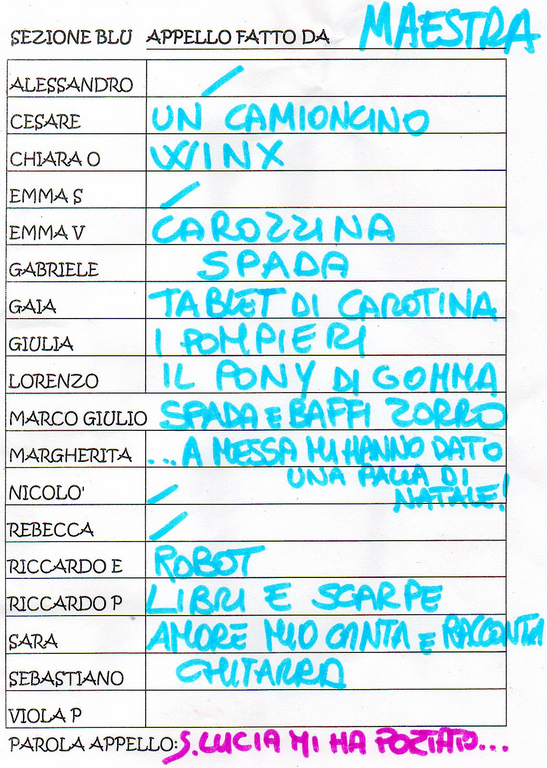 SEZIONE BLU APPELLO FATTO DA MAESTRA
ALESSANDRO /
CESARE UN CAMIONCINO
CHIARA O WINX
EMMA S /
EMMA V CAROZZINA
GABRIELE SPADA
GAIA TABLET DI CAROTINA
GIULIA I POMPIERI
LORENZO IL PONY DI GOMMA
MARCO GIULIO SPADA E BAFFI ZORRO
MARGHERITA ...A MESSA MI HANNO DATO
UNA PALLA DI
NICOLO' / NATALE!
REBECCA /
RICCARDO E ROBOT
RICCARDO P LIBRI E SCARPE
SARA AMORE MIO CANTA E RACCONTA
SEBASTIANO CHITARRA
VIOLA P
PAROLA APPELLO: S. LUCIA MI HA PORTATO...